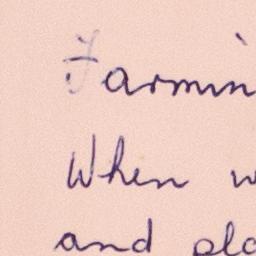 Farmin
When w
and pla